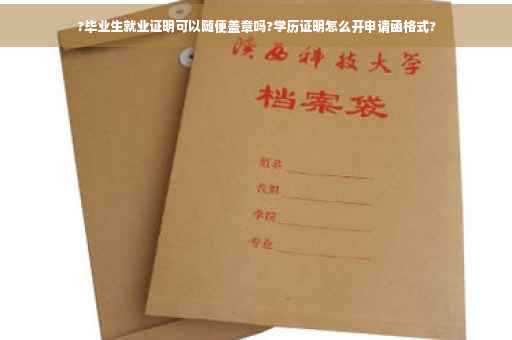 ?毕业生就业证明可以随便盖章吗?学历证明怎么开申请函格式?
陕西科技大学
档案袋
姓名
学院
专业